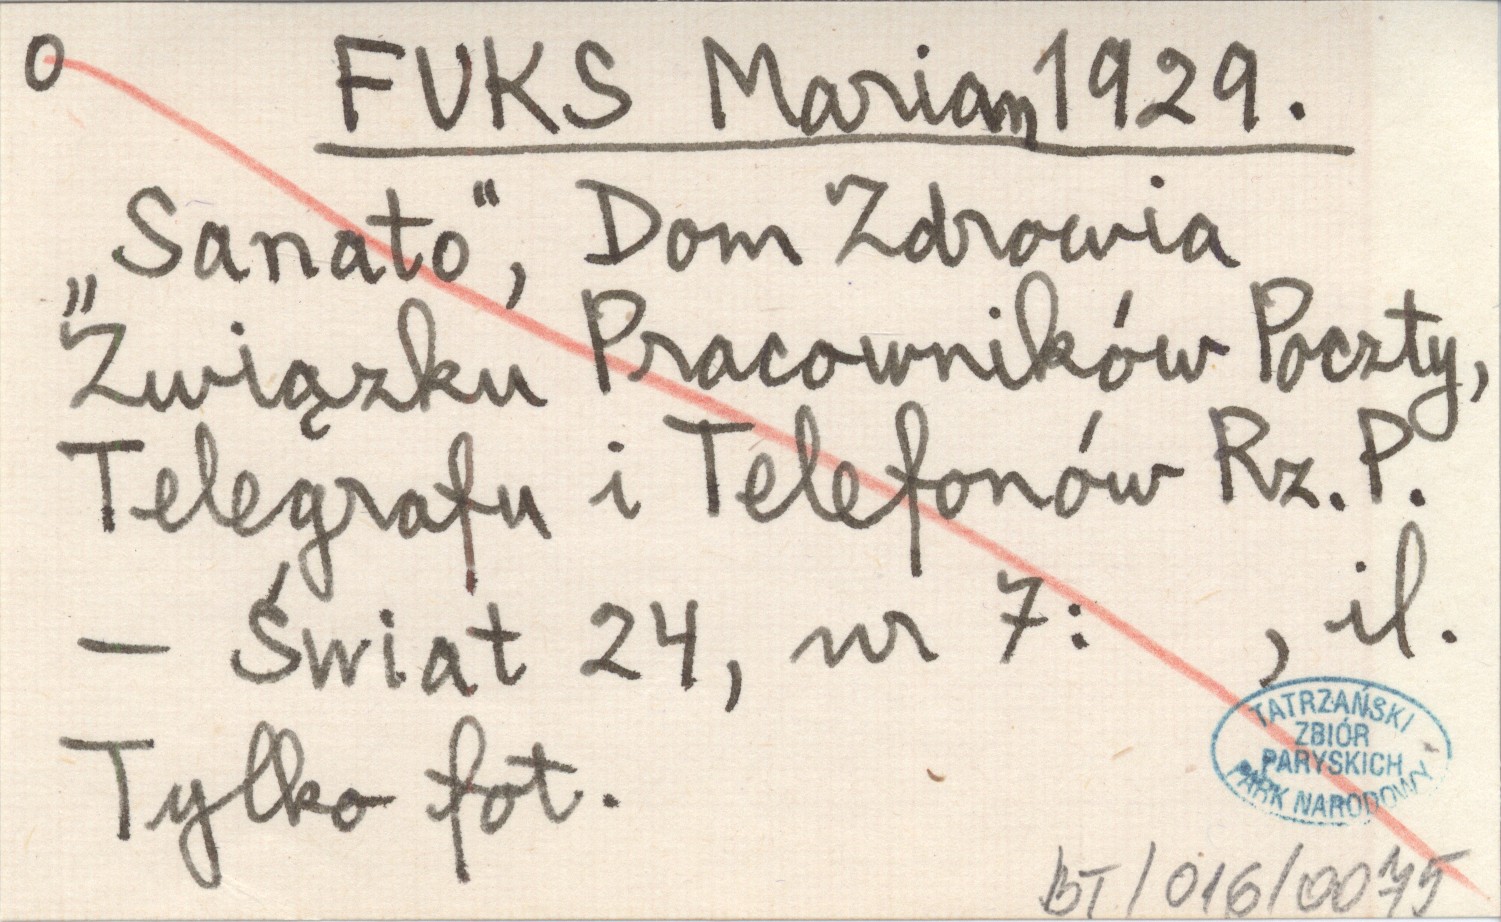 O
FUKS Marian 1929.
„Sanato", Dom Zdrowia
Związku Pracowników Poczty,
Telegrafu i Telefonów Rz. P.
— Świat 24, nr 7: , il.
Tylko fot.
TATRZAŃSKI
ZBIÓR
PARYSKICH
PARK NARODOWY
BT/016/0075